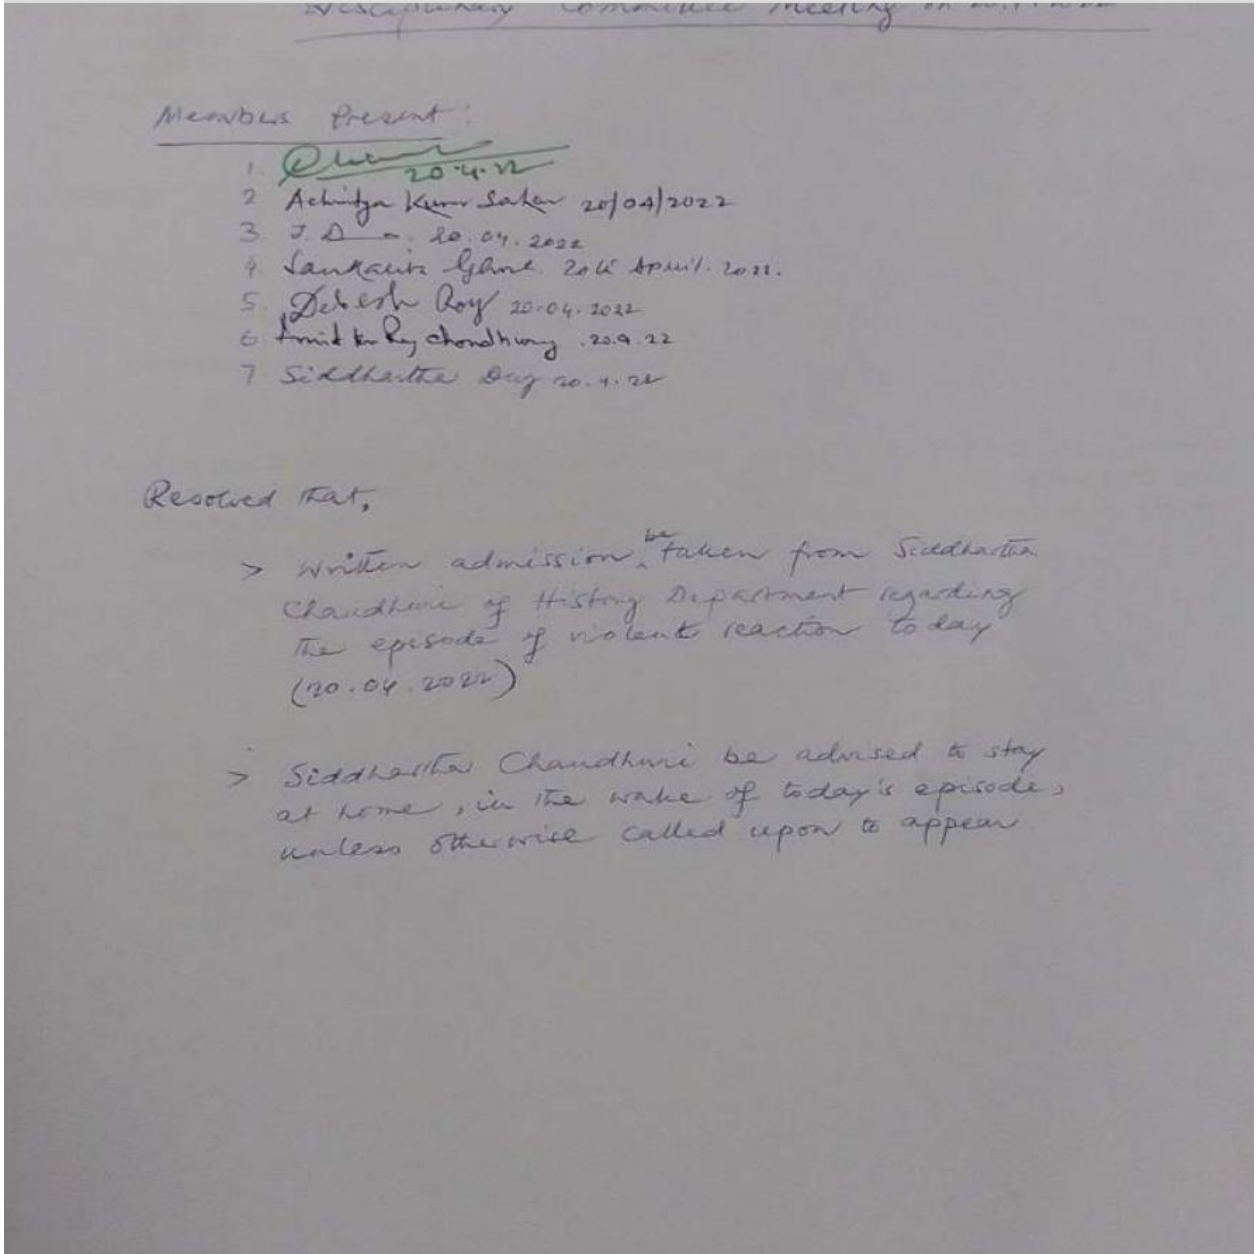 Disciplinary Committee Meeting on 20.4.2022
Members Present:
1 20.4.22
2 Achintya Kumar Sarkar 20/04/2022
3 J. D 20.04.2022
4. Sankarita Ghose 20th April. 2022.
5. Debesh Roy 20-04.2022
6 Amit Kr Ray chondhury .20.4.22
7 Siddhartha Dey 20.4.22
Resolved that,
> Written admission be taken from Siddhartha
Chaudhuri of History Department regarding
the episode of violent reaction today
(20.04.2022)
> Siddhartha Chaudhuri be advised to stay
at home, in the wake of today's episode,
unless otherwise called upon to appear.